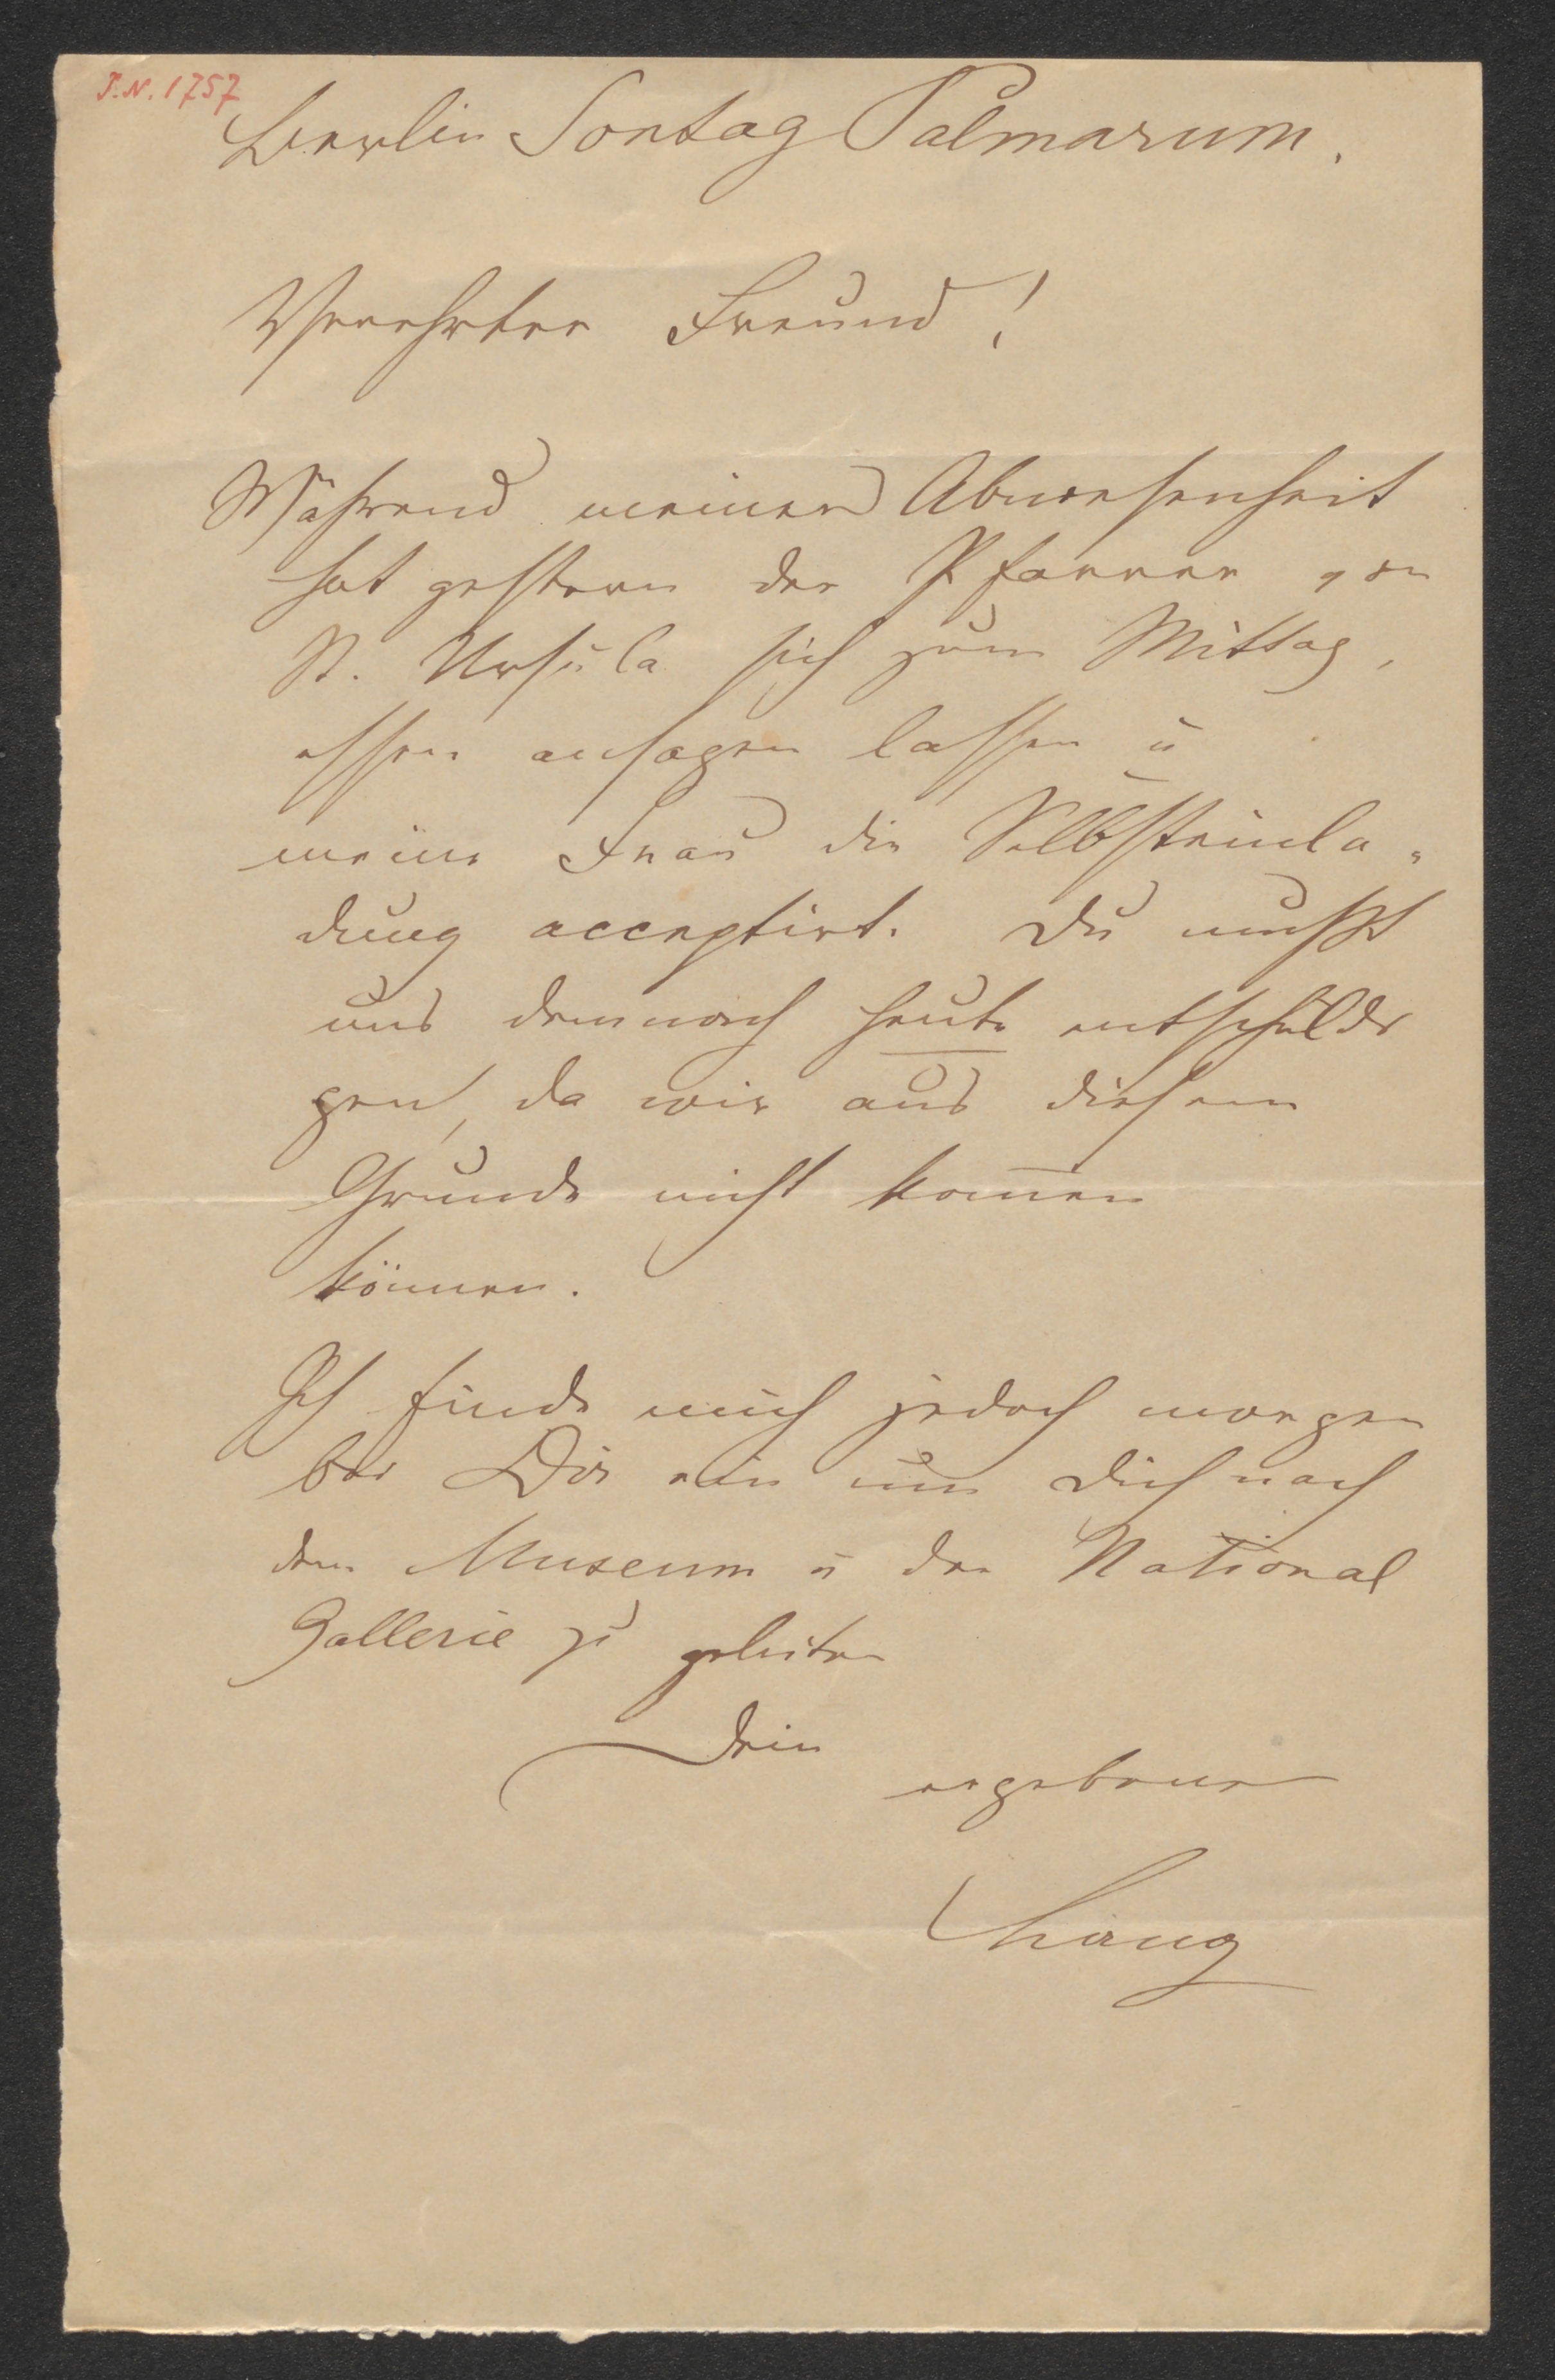 J.N. 1757
Berlin Sontag Palmarum.
Verehrter Freund!
Während meiner Abwesenheit
hat gestern der Pfarrer von
St. Ursula sich zum Mittag-
essen ansagen lassen u
meine Frau die Selbsteinla-
dung acceptirt. Du mußt
uns demnach heute entschuldi
gen, da wir aus diesem
Grunde nicht kom̄en
können.
Ich finde mich jedoch morgen
bei Dir ein um Dich nach
dem Museum u der National
Gallerie zu geleiten
Dein
ergebener